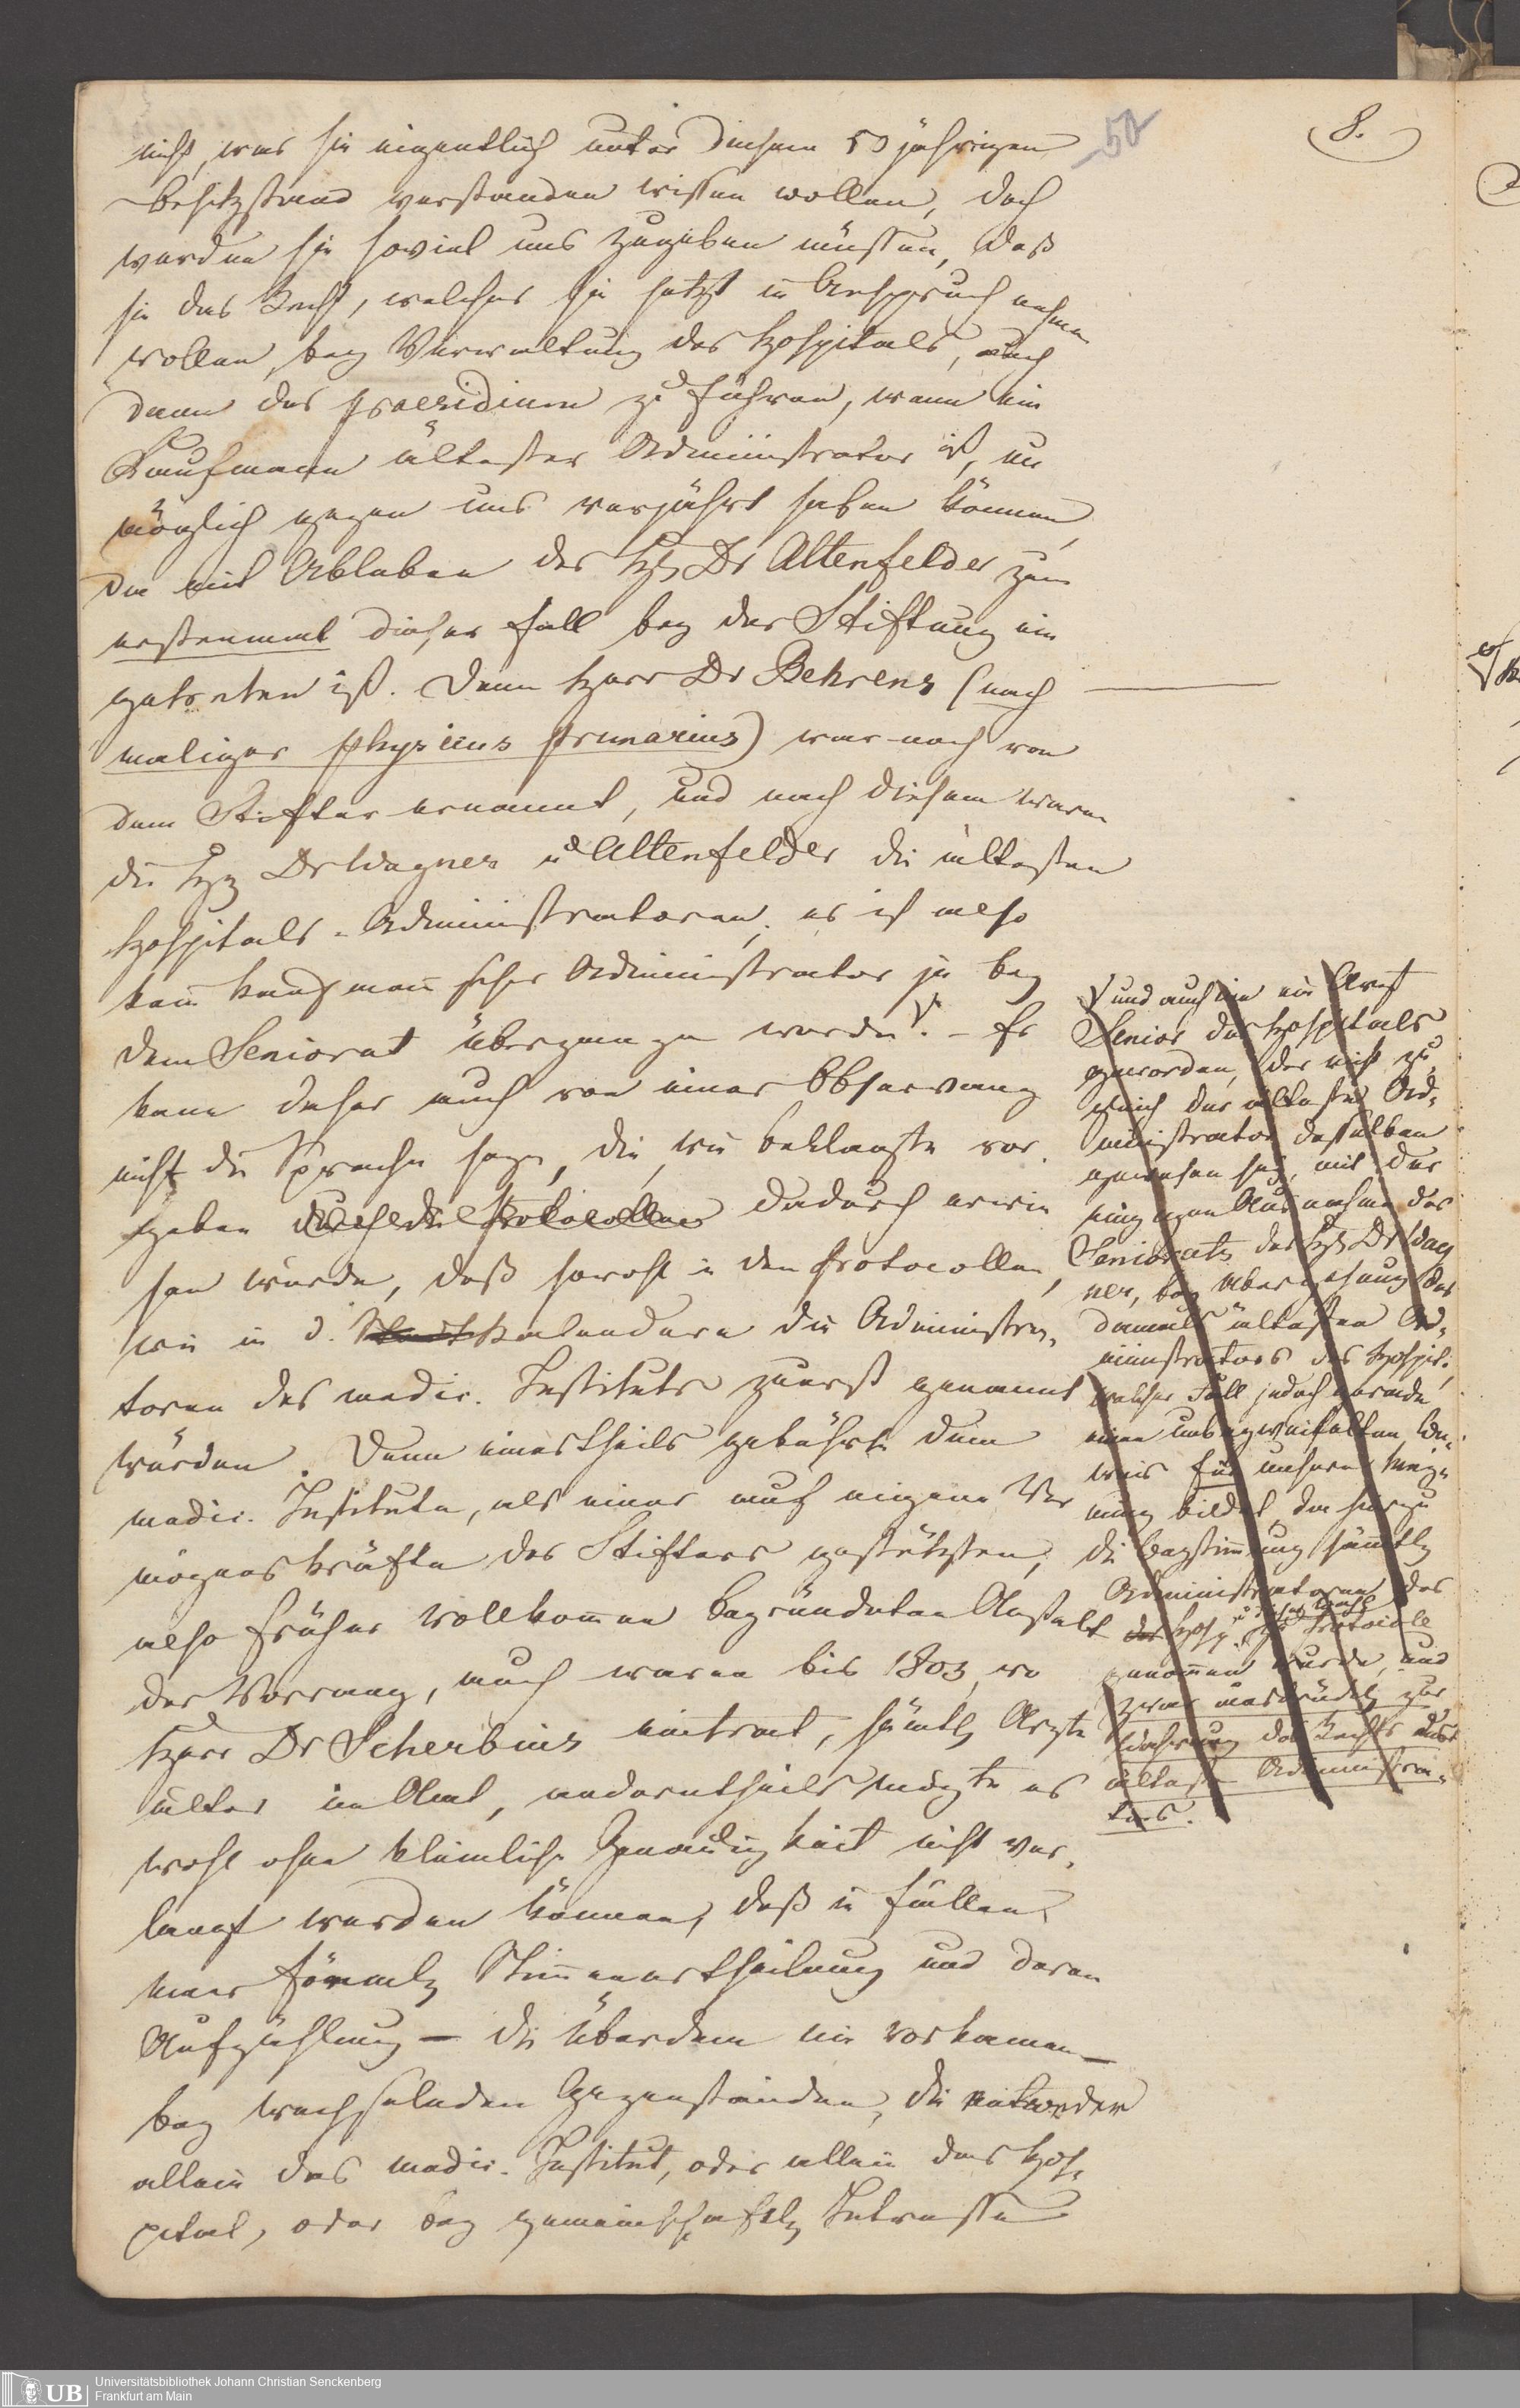 50
8.
nicht, was sie eigentlich unter diesem 50 jährigen
Besitzstand verstanden wissen wollen, doch
werden sie soviel uns zugeben müssen, daß
sie das Recht, welches sie jetzt in Anspruch nehmen
wollen, bey Verwaltung des Hospitals, auch
dann das praesidium zu führen, wann ein
Kaufmann ältester Administrator ist, un
möglich gegen uns verjährt haben können,
da mit Ableben des H Dr Altenfelder zum
erstenmal dieser Fall bey der Stiftung ein
getreten ist. Denn Herr Dr Behrens (nach
maliger physicus primarius) war noch von
dem Stifter ernannt, und nach diesem waren
die Hrn Dr Wagner u Altenfelder die ältesten
Hospitals-Administratoren, es ist also
kein kaufmännischer Administrator je bey
dem Seniorat übergangen worden. – Es
kann daher auch von einer Observanz
nicht die Sprache seyn, die, wie Beklagte vor
geben durch die Protocolle dadurch erwie
sen würde, daß sowohl in den Protocollen,
wie in d. Staatskalendern die Administra,
toren des medic. Instituts zuerst genannt
würden. Denn einestheils gebührte dem
medic. Institute, als einer auf eigene Ver
mögenskräfte des Stifters gestützten,
also früher vollkommen begründeten Anstalt
der Vorrang, auch waren bis 1803, wo
Herr Dr Scherbius eintrat, sämtl Aerzte
älter im Amt, anderntheils mögte es
wohl ohne kleinliche Genauigkeit nicht ver,
langt werden können, daß in Fällen,
einer förmlich Stimmenertheilung und deren
Aufzählung – die überdem nie vorkamen –
bey wechselnden Gegenständen, die entweder
allein das medic. Institut, oder allein das Hos,
pital, oder bey gemeinschaftl Interesse
und auch nie ein Arzt
Senior des Hospitals
geworden, der nicht zu,
gleich der älteste Ad,
ministrator desselben
gewesen sey, mit der
einzigen Ausnahme des
Seniorats des H Dr Wag
ner, bey Übergehung des
damals ältesten Ad,
ministrators des Hospit.
welcher Fall jedoch gerade
einen unbezweifelten Be,
weis für unsere Mey,
nung bildet, da hiezu
die Beystimmung sämmtl
Administratoren des
Hosp. zu Protocoll
genommen wurde, und
zwar ausdrückl zur
Wahrung des Rechts des
ältesten Administra,
tors.
Universitätsbibliothek Johann Christian Senckenberg
Frankfurt am Main
UB